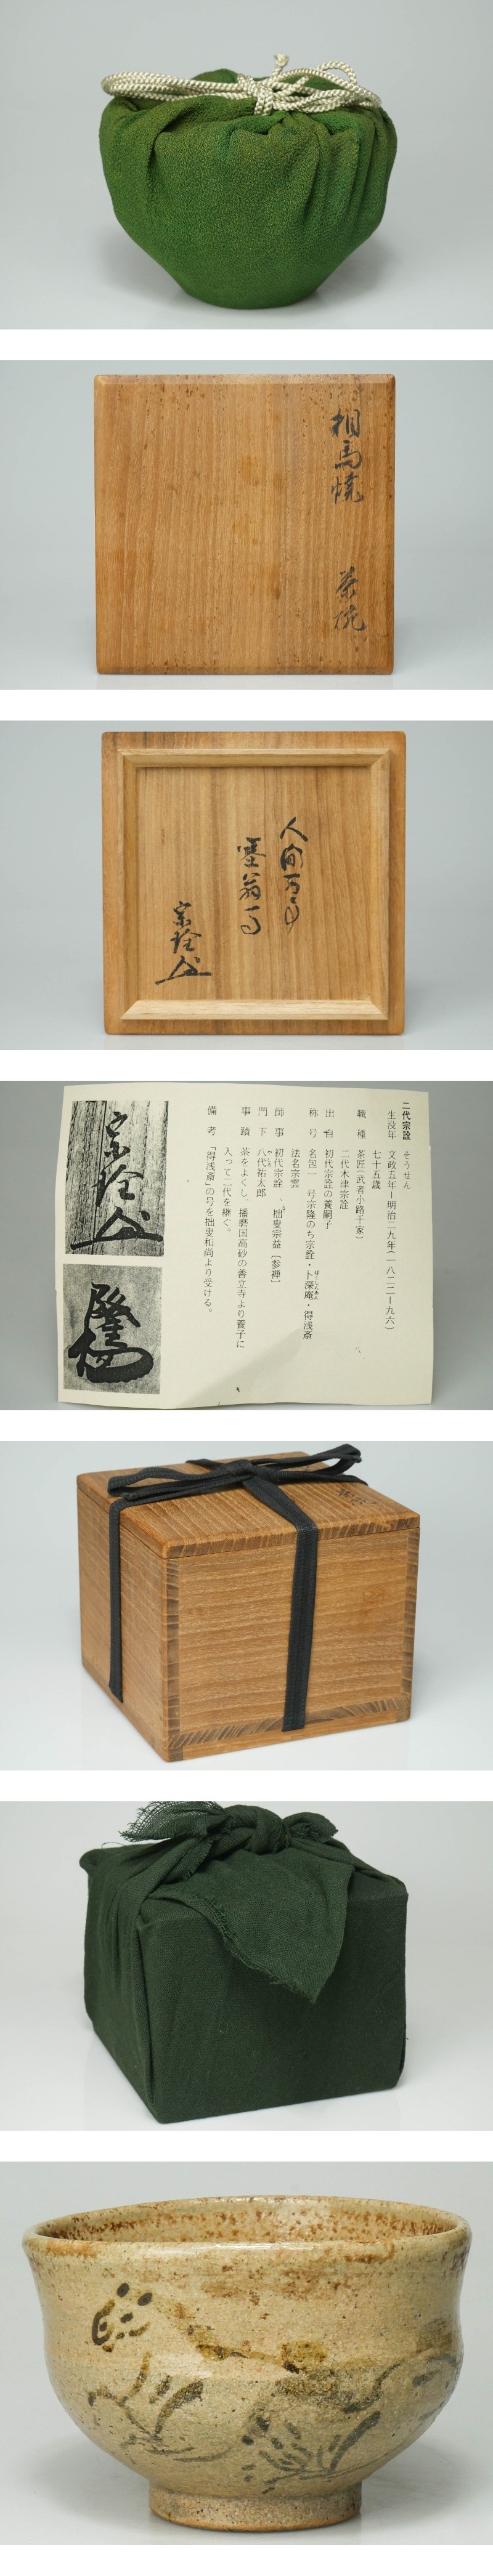 相馬焼　茶碗
人間万事
塞翁馬
宗詮
二代宗詮　そうせん
生没年　文政五年―明治二九年(一八二二―九六)
七十五歳
職　種　茶匠(武者小路千家)
二代木津宗詮
出　自　初代宗詮の養嗣子
称　号　名包一　号宗隆のち宗詮・卜深庵・得浅斎
法名宗雲
師　事　初代宗詮、拙叟宗益〔参禅〕
門　下　八代祐太郎
事　蹟　茶をよくし、播磨国高砂の善立寺より養子に
入って二代を継ぐ。
備　考　「得浅斎」の号を拙叟和尚より受ける。
宗詮